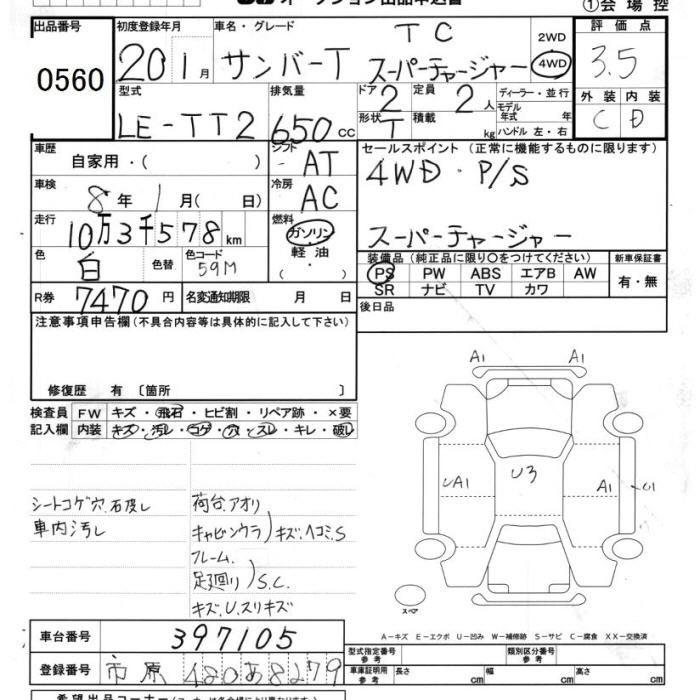 オークション出品申込書
①会場控
出品番号 初度登録年月 車名・グレード 評価点
0560 20 1月 サンバーT TC スーパーチャージャー 2WD 4WD 3.5
型式 排気量 ドア 2 定員 2人 ディーラー・並行 外装 内装
LE-TT2 650cc 形状 T 積載 kg モデル年式 年 ハンドル 左・右 C D
車歴 自家用・( ) シフト AT セールスポイント (正常に機能するものに限ります)
車検 8年1月( 日) 冷房 AC 4WD・P/S
走行 10万3千578km 燃料 ガソリン・軽油・ スーパーチャージャー
色 白 色替 色コード 59M 装備品 (純正品に限り○をつけてください) 新車保証書
PS PW ABS エアB AW 有・無
SR ナビ TV カワ
R券 7470円 名変通知期限 月 日 後日品
注意事項申告欄 (不具合内容等は具体的に記入して下さい)
修復歴 有 〔箇所 〕
検査員 FW キズ・飛石・ヒビ割・リペア跡・×要
記入欄 内装 キズ・汚レ・コゲ・穴・スレ・キレ・破レ
A1 A1
UA1 U3 A1 U1
シートコゲ穴.
車内汚レ
荷台.アオリ
キャビンウラ)キズ.ヘコミ.S
フレーム.
足廻リ)S.C.
キズ.U.スリキズ
スペア
A－キズ E－エクボ U－凹み W－補修跡 S－サビ C－腐食 XX－交換済
車台番号 397105
型式指定番号 参考 類別区分番号 参考
登録番号 市原480あ8279
車庫証明用 参考 長さ cm 幅 cm 高さ cm
希望出品コーナー